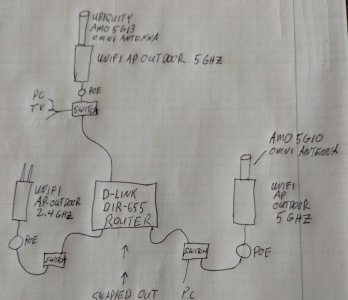 UBIQUITY
AMO 5G13
OMNI ANTENNA
UNIFI AP OUTDOOR 5GHZ
POE
PC
TV
SWITCH
AMO 5G10
OMNI ANTENNA
UNIFI
AP OUTDOOR
2.4GHZ
D-LINK
DIR-655
ROUTER
UNIFI
AP
OUTDOOR
5GHZ
POE
SWITCH
SWITCH
POE
SWAPPED OUT
P.C